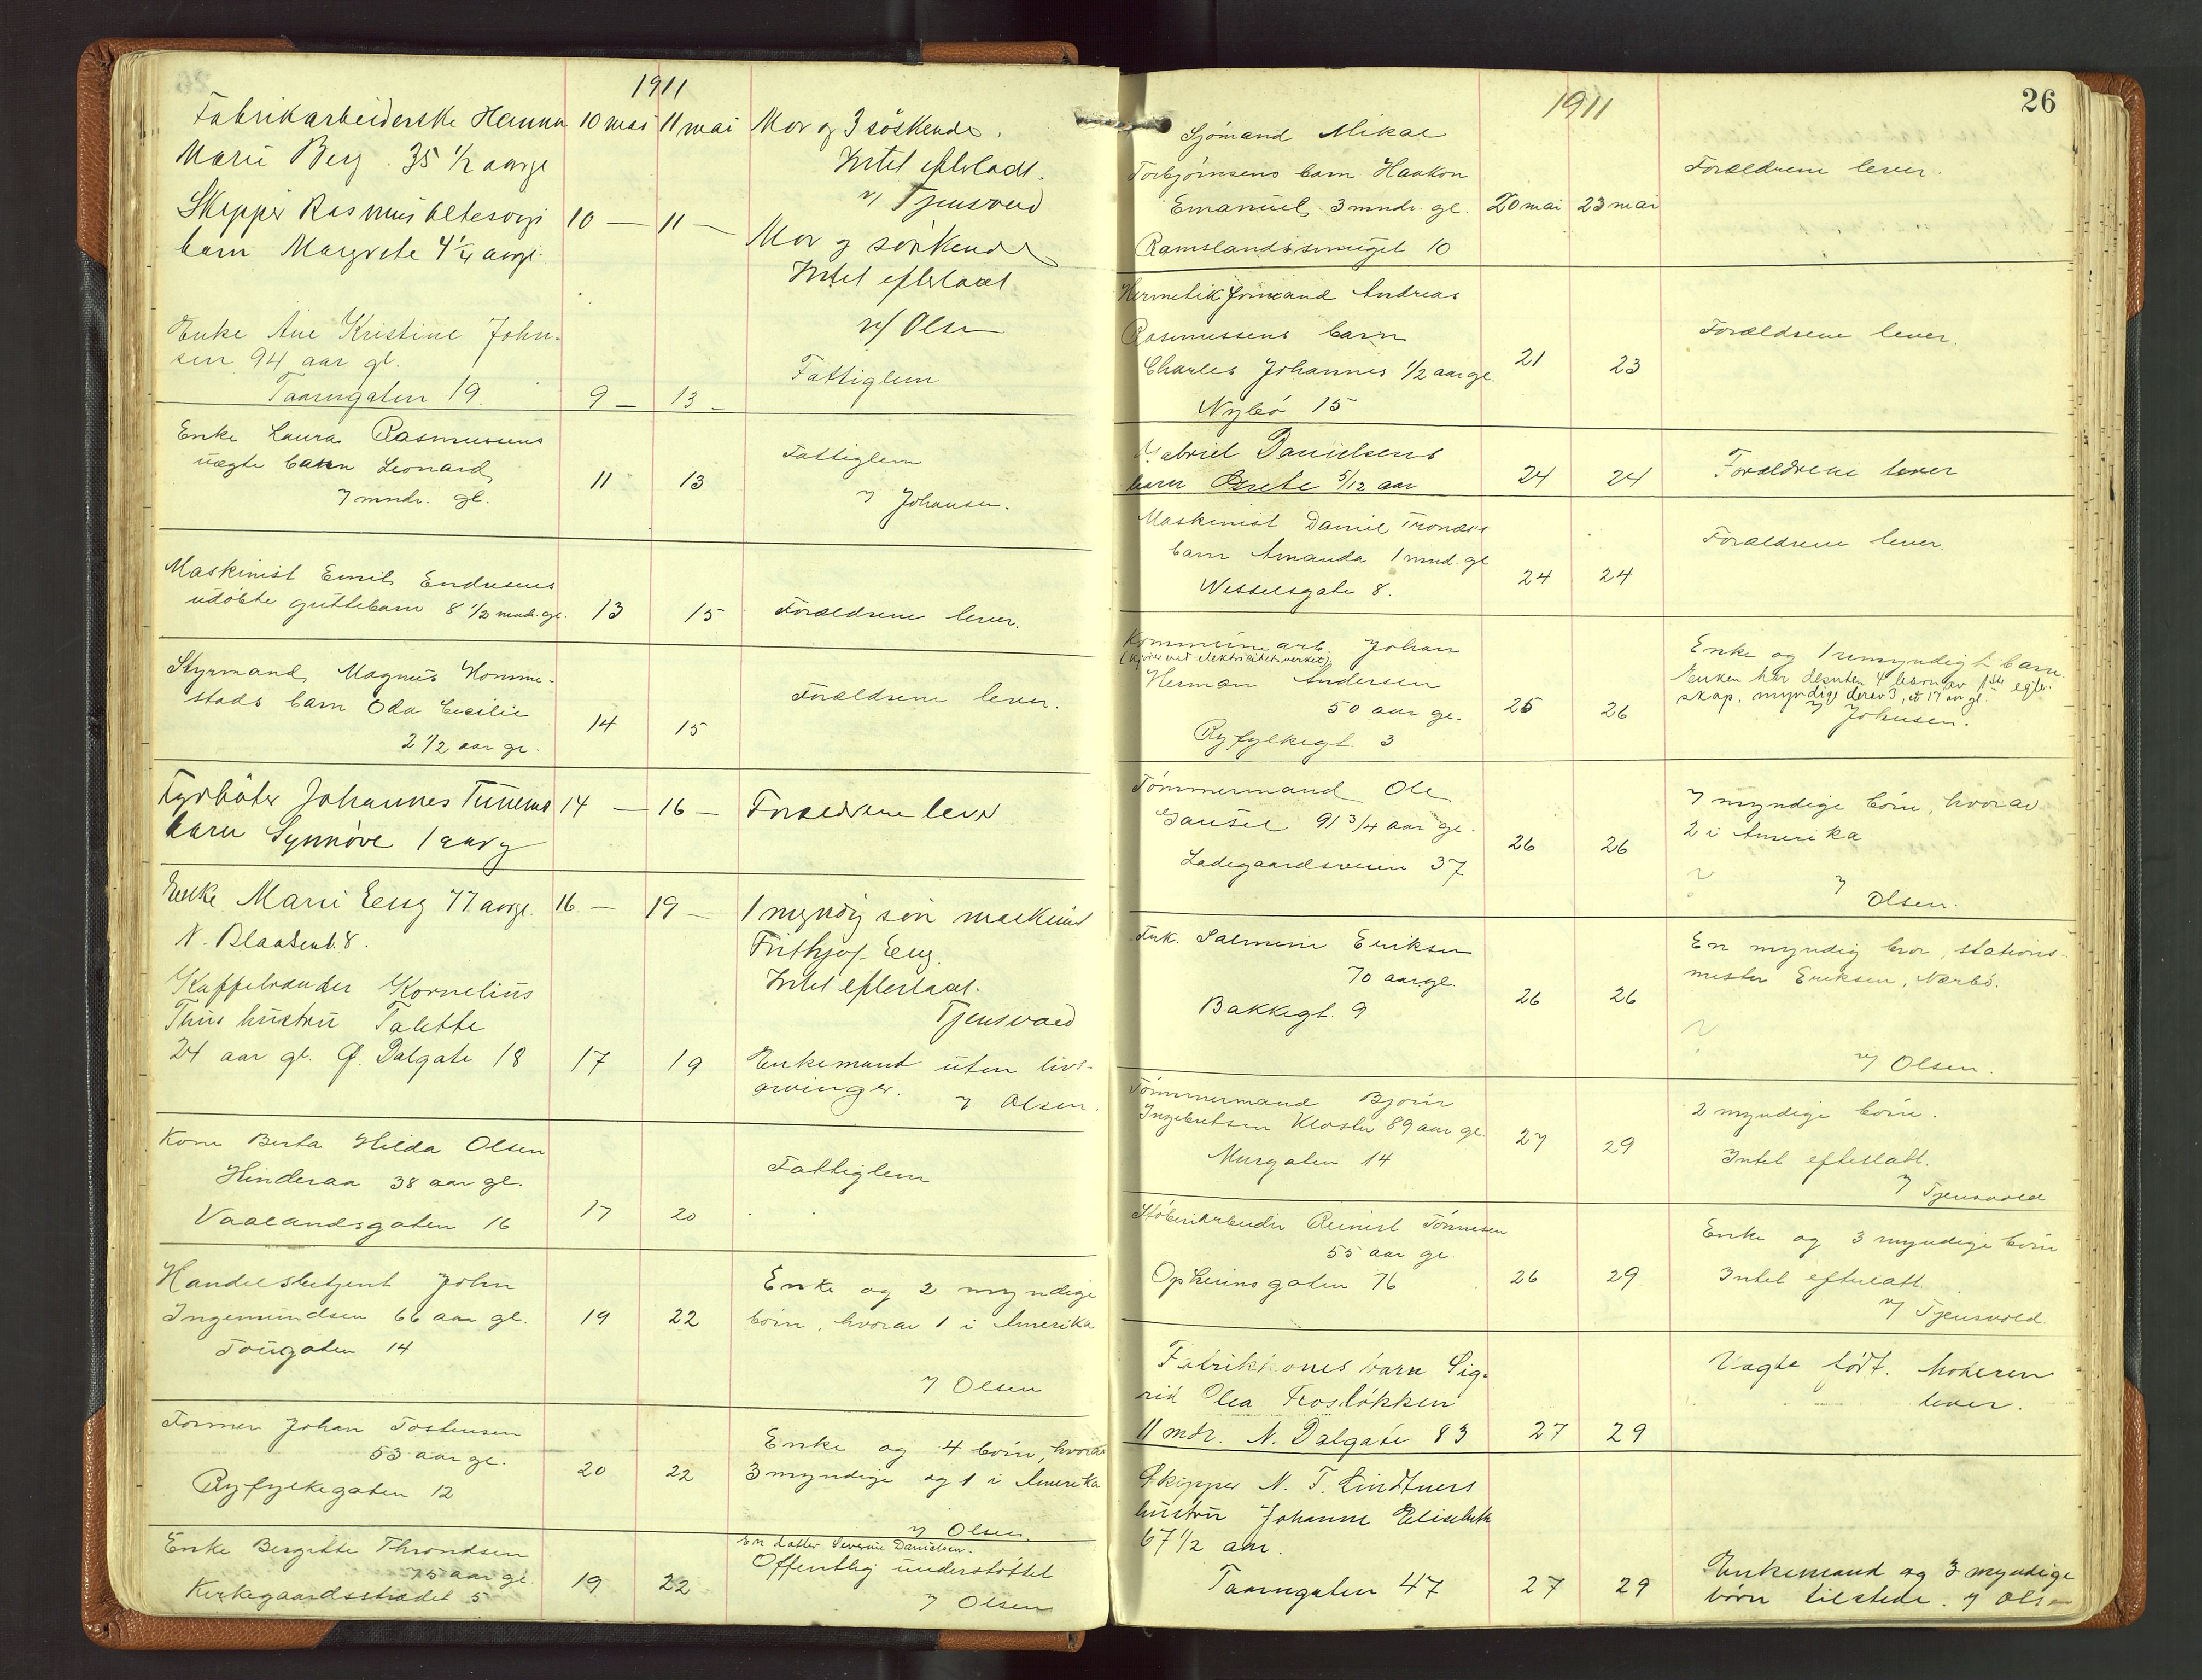 1911
Fabrikarbeiderske Hanna 10 mai 11 mai Mor og 3 söskende.
Marie Berg. 35 1/2 aargl Intet efterladt.
v/ Tjensvold
Skipper Rasmus barn Margrete 4 1/4 aargl. 10 — 11 — Mor og söskende
Intet efterladt
v/ Olsen
Enke Ane Kristine John-
sen 94 aar gl.
Taarngaten 19. 9 — 13 — Fattiglem
Enke Laura Rasmussens
uægte barn Leonard 11 13 Fattiglem
7 mndr. gl. v/ Johansen.
Maskinist Emil Endresens
udöbte guttebarn 8 1/2 mndr. gl. 13 15 Forældrene lever.
Styrmand Magnus Homme-
stads barn Oda Cecilie 14 15 Forældrene lever.
2 1/2 aar gl.
Fyrböter Johannes Tunems 14 — 16 — Forældrene lever
barn Synnöve 1 aar g
Enke Marie Eeg 77 aargl. 16 — 19 — 1 myndig sön maskinist
N. Blaasenb. 8. Frithjof Eeg.
Intet efterladt.
Tjensvold
Kaffebrænder Kornelius
Thus hustru Talette
24 aar gl. Ø. Dalgate 18 17 19 Enkemand uten livs-
arvinger. v/ Olsen.
Kone Berta Hilda Olsen
Hinderaa 38 aar gl. Fattiglem
Vaalandsgaten 16 17 20
Handelsbetjent John Enke og 2 myndige
Ingemundsen 66 aar gl. 19 22 börn, hvorav 1 i Amerika
Tougaten 14
v/ Olsen
Former Johan Tostensen
53 aar gl. 20 22 Enke og 4 börn, hvorav
Ryfylkegaten 12 3 myndige og 1 i Amerika
v/ Olsen.
Enke Bergitte Throndsen En datter Severine Danielsen.
75 aar gl. 19 22 Offentlig understöttet
Kirkegaardsstrædet 5 v/ Olsen
26
1911
Sjömand Mikal
Torbjörnsens barn Haakon Forældrene lever.
Emanuel 3 mndr. gl. 20 mai 23 mai
Ramslandssmuget 10
Hermetikformand Andreas
Rasmussens barn Forældrene lever.
Charles Johannes 1/2 aar gl. 21 23
Nybö 15
Gabriel Danielsens
barn Grete 5/12 aar 24 24 Forældrene lever
Maskinist Daniel Tronæs's
barn Amanda 1 mnd. gl 24 24 Forældrene lever.
Wesselsgate 8.
Kommunearb. Johan Enke og 1 umyndigt barn.
(kjörer ved elektricitetsverket) Enken har desuten 4 börn av 1ste egte-
Herman Andersen skap, myndige derav 3, et 17 aar gl.
50 aar gl. 25 26 v/ Johnsen.
Ryfylkegt. 3
Tömmermand Ole 7 myndige börn, hvorav
Gausel 91 3/4 aar gl. 26 26 2 i Amerika
Ladegaardsveien 37
v/ Olsen.
Frk. Salmine Eriksen En myndig bror, stations-
70 aar gl. 26 26 mester Eriksen, Nærbö.
Bakkegt. 9
v/ Olsen.
Tömmermand Björn 2 myndige börn.
Ingebretsen Kloster 89 aar gl. 27 29 Intet efterlatt.
Murgaten 14 v/ Tjensvold
Stöberiarbeider Reinert Tönnesen Enke og 3 myndige börn
55 aar gl.
Opheimsgaten 76 26 29 Intet efterlatt.
v/ Tjensvold.
Fabrikkones barn Sig- Uægte födt. Moderen
rid Olea Froslökken lever.
11 mdr. N. Dalgate 83 27 29
Skipper N. T. Lindtners
hustru Johanne Elisabeth
67 1/2 aar. Enkemand og 3 myndige
Taarngaten 47 27 29 börn tilstede. v/ Olsen